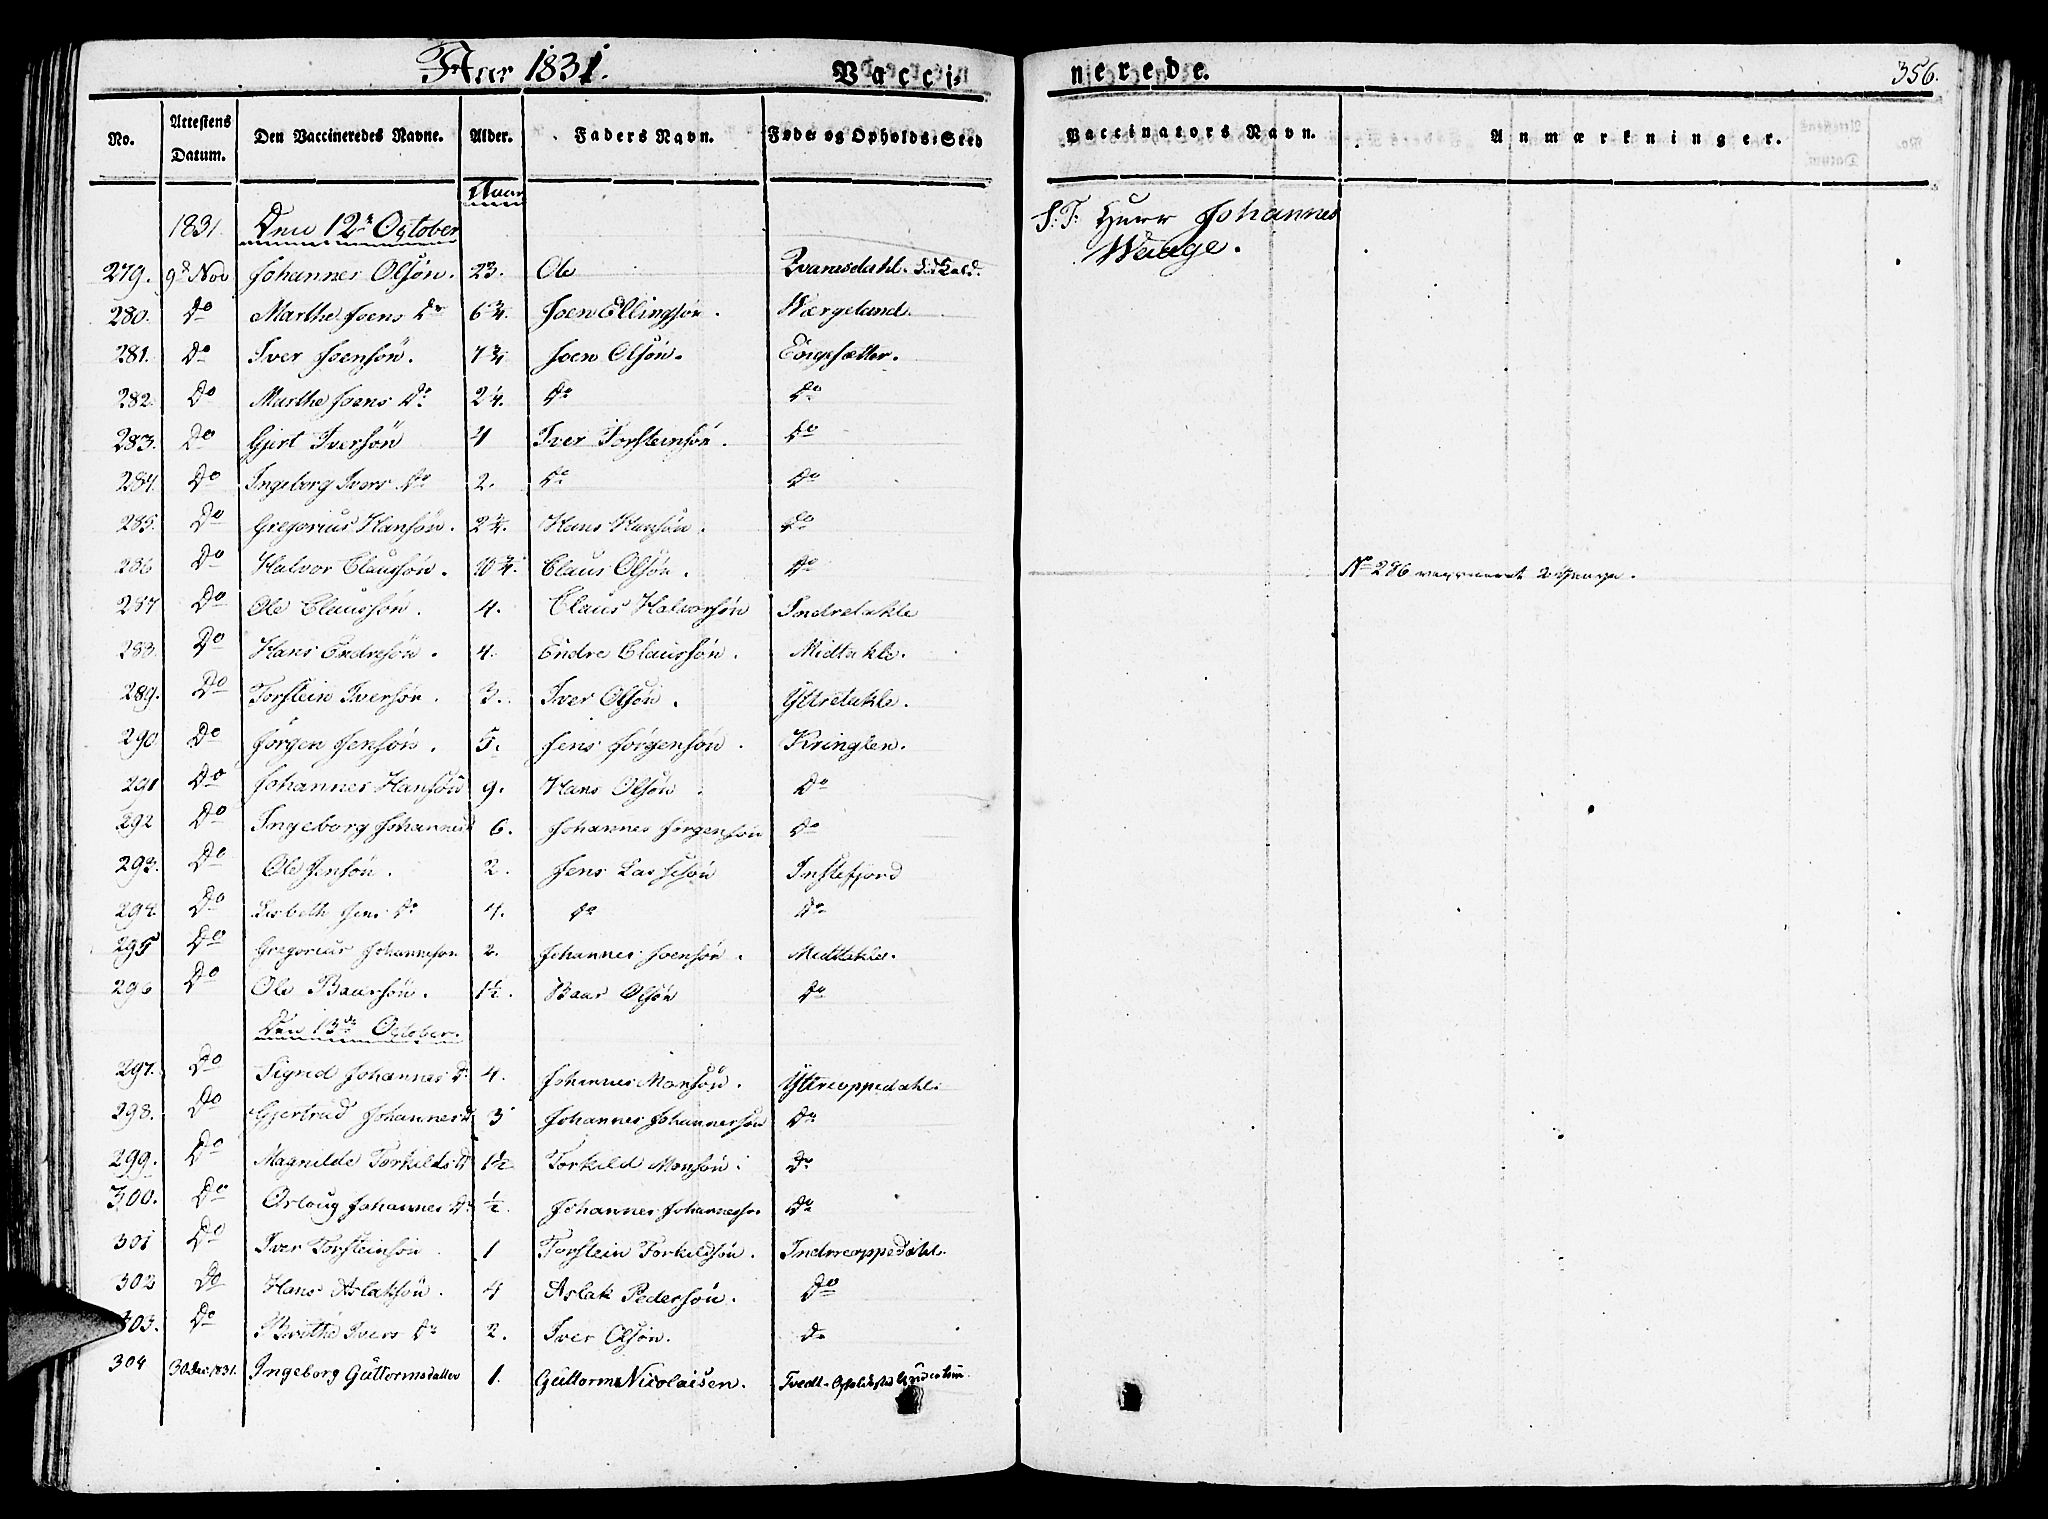 Aar 1831. Vacci- nerede. 356.
No. Attestens Datum. Den Vaccineredes Navne. Alder. Faders Navn. Føde og Opholds-Sted Vaccinators Navn. Anmærkninger.
Aar
1831. Den 12te October S. T. Herr Johannes
Wenge.
279. 9d Nov Johannes Olsøn. 23. Ole
280. Do Marthe Joens Dr 6 3/4. Joen Ellingsøn. Værgeland.
281. Do Iver Joensøn. 7 3/4 Joen Olsøn. Engesætter.
282. Do Marthe Joens Dr. 2 1/4. Do Do
283. Do Gjert Iversøn 4 Iver Torsteinsøn. Do
284. Do Ingeborg Ivers Dr 2. Do Do
285. Do Gregorius Hansøn. 2 3/4. Hans Hansøn. Do
286 Do Halvor Claussøn. 10 3/4. Claus Olsøn. Do No 286 2 Gange.
287 Do Ole Claussøn. 4. Claus Halvorsøn Indretakle
288. Do Hans Endresøn. 4. Endre Claussøn. Midtakle.
289. Do Torstein Iversøn. 3. Iver Olsøn. Yttretakle.
290 Do Jørgen Jensøn. 5. Jens Jørgensøn. Kringlen.
291 Do Johannes Hansøn 9. Hans Olsøn Do
292 Do Ingeborg Johannesd 6. Johannes Jørgensøn Do
293. Do Ole Jensøn. 2. Jens Lassesøn Instefjord
294. Do Lisbeth Jens Dr 4. Do Do
295 Do Gregorius Johannesøn 2. Johannes Joensøn. Midtakle.
296 Do Ole Baarsøn. 1 1/2. Baar Olsøn Do
Den 13de October.
297. Do Sigrid Johannes D. 4. Johannes Monsøn. Yttreoppedahl.
298. Do Gjertrud Johannesd 3 Johannes Johannessøn Do
299. Do Magnilde Torkilds D 1 1/2 Torkild Monsøn. Do
300. Do Osloug Johannes Dr 1/2. Johannes Johannessø. Do
301 Do Iver Torsteinsøn 1 Torstein Torkildsøn. Indreoppedahl.
302 Do Hans Aslaksøn. 4 Aslak Pedersøn. Do
303. Do Brithe Ivers Dr 2. Iver Olsøn. Do
304 30 Dec 1831. Ingeborg Guttormsdatter 1. Guttorm Nicolaisen. Tvedt.